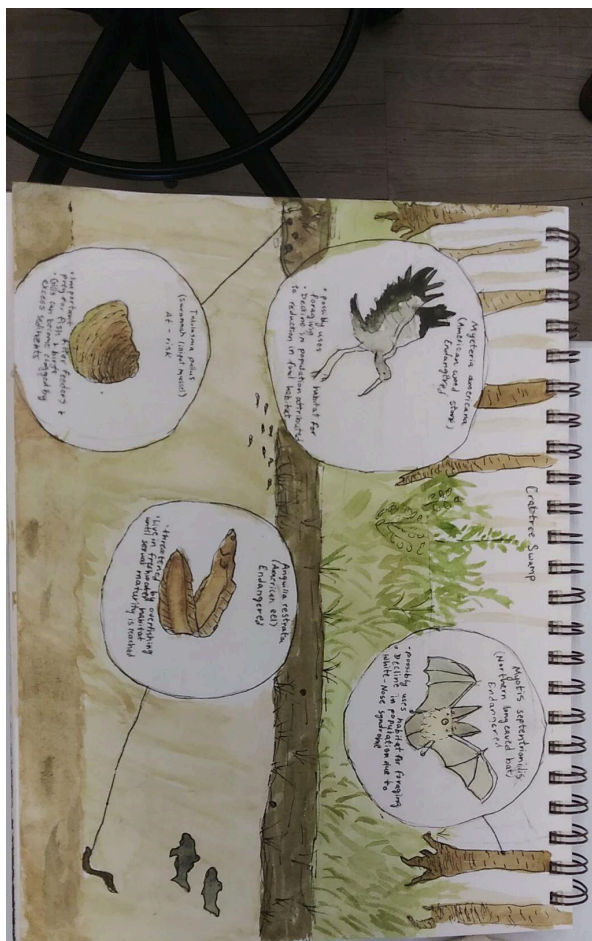 Crabtree Swamp
Mycteria americana
(American wood stork)
Endangered
• possibly uses habitat for
foraging
• Decline in population attributed
to reduction in food habitat
Myotis septentrionidis
(Northern long eaved bat)
Endangered
• possibly uses habitat for foraging
• Decline in population due to
White-Nose syndrome
Toxolasma pullus
(Savannah lilliput mussel)
At-risk
• Important filter feeders &
prey for fish & birds
• Gills can become clogged by
excess sediments
Anguilla rostrata
(American eel)
Endangered
• threatened by overfishing
• live in freshwater habitat
until sexual maturity is reached